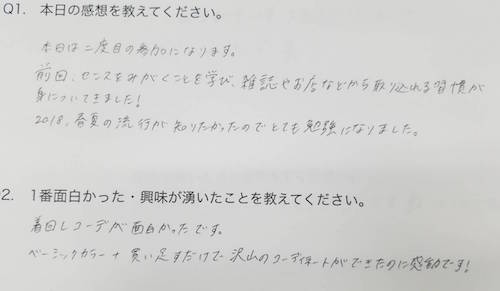 Q1. 本日の感想を教えてください。
本日は二度目の参加になります。
前回、センスをみがくことを学び、雑誌やお店などから取り込れる習慣が
身についてきました!
2018、春夏の流行が知りたかったのでとても勉強になりました。
2. 1番面白かった・興味が湧いたことを教えてください。
着回しコーデが面白かったです。
ベーシックカラー+買い足すだけで沢山のコーディネートができたのに感動です!